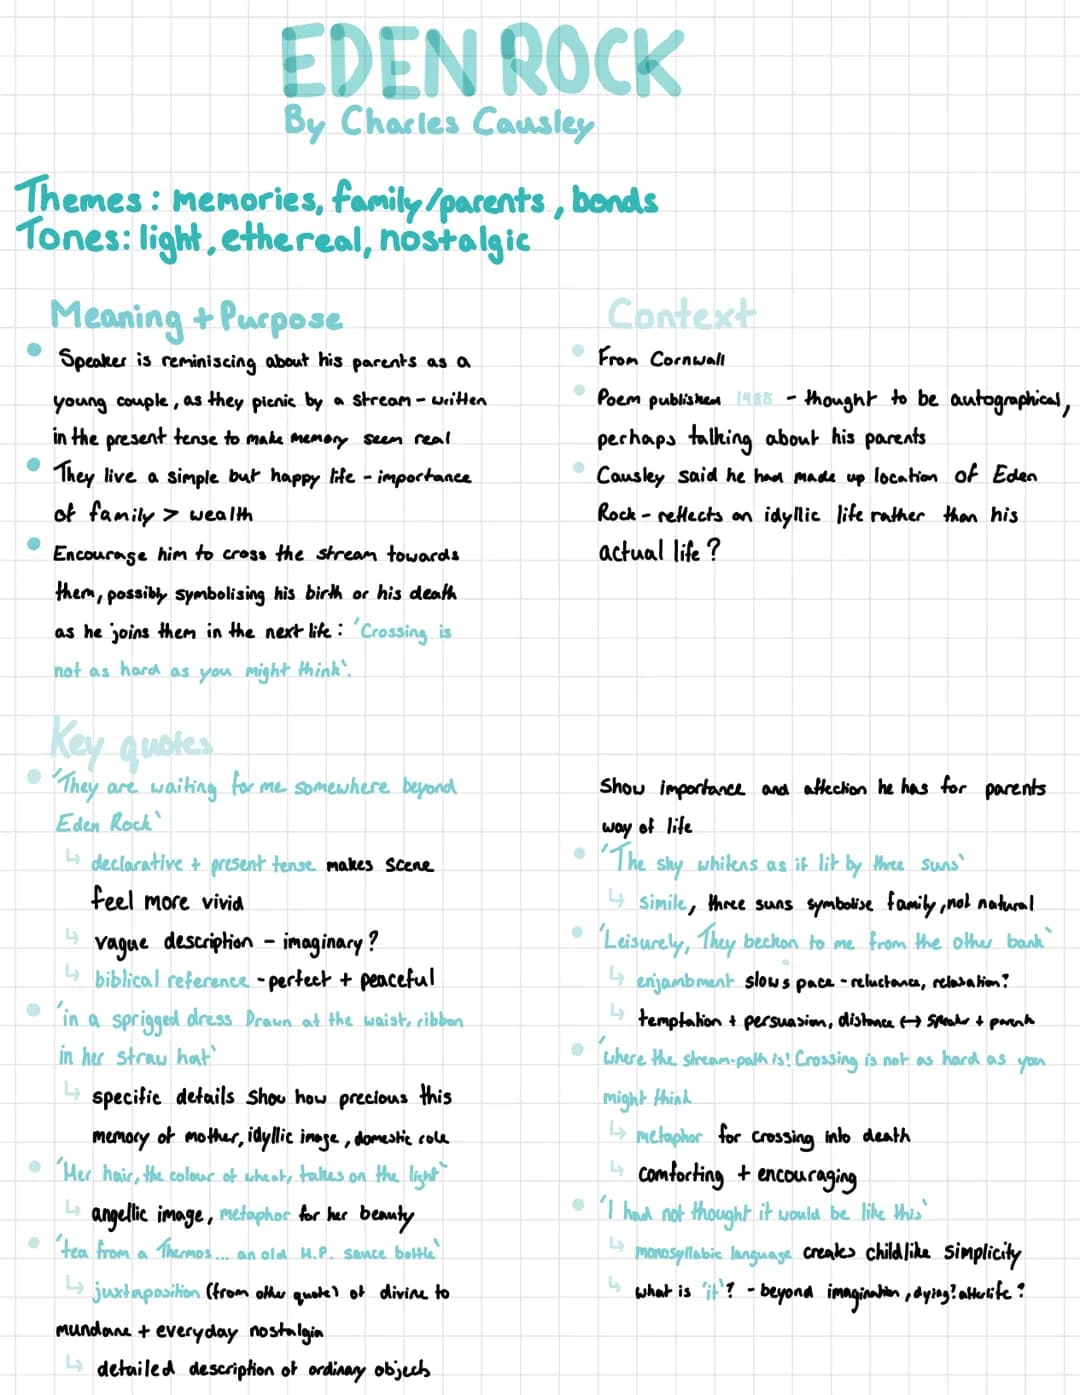 EDEN ROCK
By Charles Causley
Themes: memories, family/parents, bonds
Tones: light, ethereal, nostalgic
Meaning + Purpose
• Speaker is reminiscing about his parents as a
young couple, as they picnic by a stream - written
in the present tense to make memory seem real
• They live a simple but happy life - importance
of family > wealth
• Encourage him to cross the stream towards
them, possibly symbolising his birth or his death
as he joins them in the next life: 'Crossing is
not as hard as you might think'.
Context
• From Cornwall
• Poem published 1988 - thought to be autographical,
perhaps talking about his parents
• Causley said he had made up location of Eden
Rock - reflects on idyllic life rather than his
actual life?
Key quotes
• 'They are waiting for me somewhere beyond
Eden Rock'
↳ declarative + present tense makes scene
feel more vivid
↳ vague description - imaginary?
↳ biblical reference - perfect + peaceful
• 'in a sprigged dress Drawn at the waist, ribbon
in her straw hat'
↳ specific details show how precious this
memory of mother, idyllic image, domestic role
• 'Her hair, the colour of wheat, takes on the light'
↳ angellic image, metaphor for her beauty
• 'tea from a Thermos... an old H.P. sauce bottle'
↳ juxtaposition (from other quote) of divine to
mundane + everyday nostalgia
↳ detailed description of ordinary objects
Show importance and affection he has for parents
way of life
• 'The sky whitens as if lit by three suns'
↳ simile, three suns symbolise family, not natural
• 'Leisurely, They beckon to me from the other bank'
↳ enjambment slows pace - reluctance, relaxation?
↳ temptation + persuasion, distance ↔ speaker + parents
• 'where the stream-path is! Crossing is not as hard as you
might think
↳ metaphor for crossing into death
↳ comforting + encouraging
• 'I had not thought it would be like this'
↳ monosyllabic language creates childlike simplicity
↳ what is 'it'? - beyond imagination, dying? afterlife?